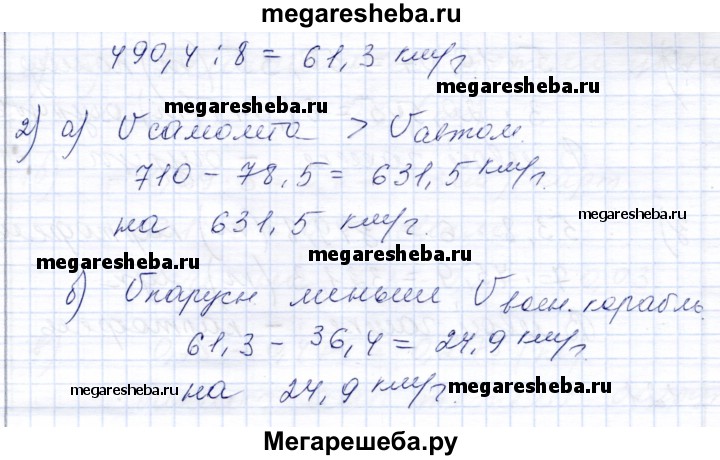 megaresheba.ru
490,4 : 8 = 61,3 км/г
megaresheba.ru
2) а) Vсамолета > Vавтом.
710 - 78,5 = 631,5 км/г.
на 631,5 км/г.
megaresheba.ru
megaresheba.ru
megaresheba.ru
б) Vпарусн меньше Vвоен. корабль
61,3 - 36,4 = 24,9 км/г.
на 24,9 км/г.
megaresheba.ru
megaresheba.ru
Мегарешеба.ру